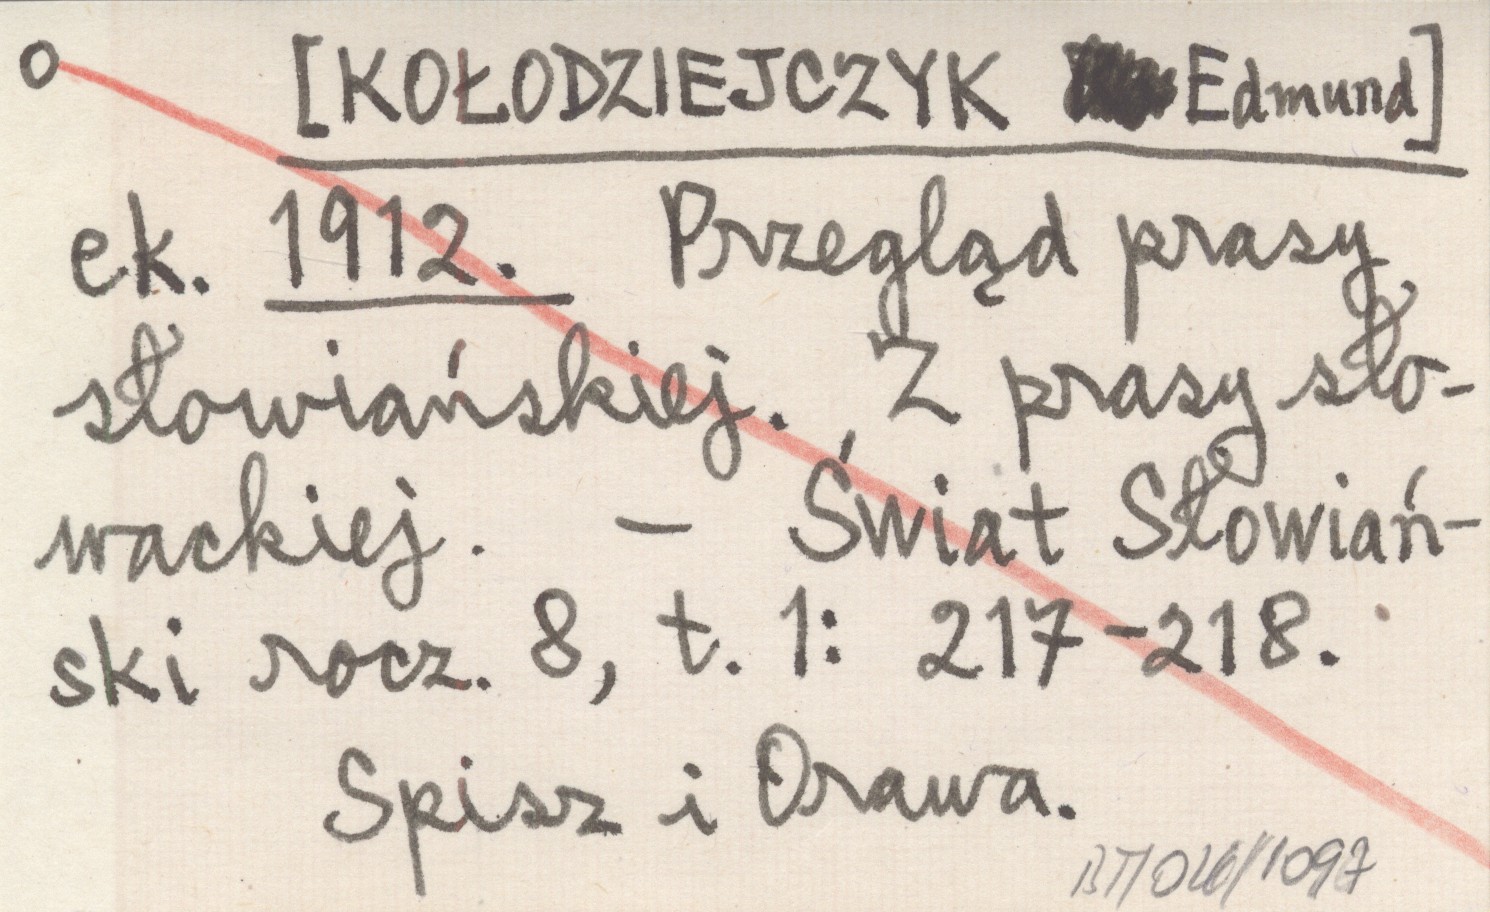 o [KOŁODZIEJCZYK Edmund]
ek. 1912. Przegląd prasy
słowiańskiej. Z prasy sło-
wackiej. – Świat Słowiań-
ski rocz. 8, t. 1: 217-218.
Spisz i Orawa.